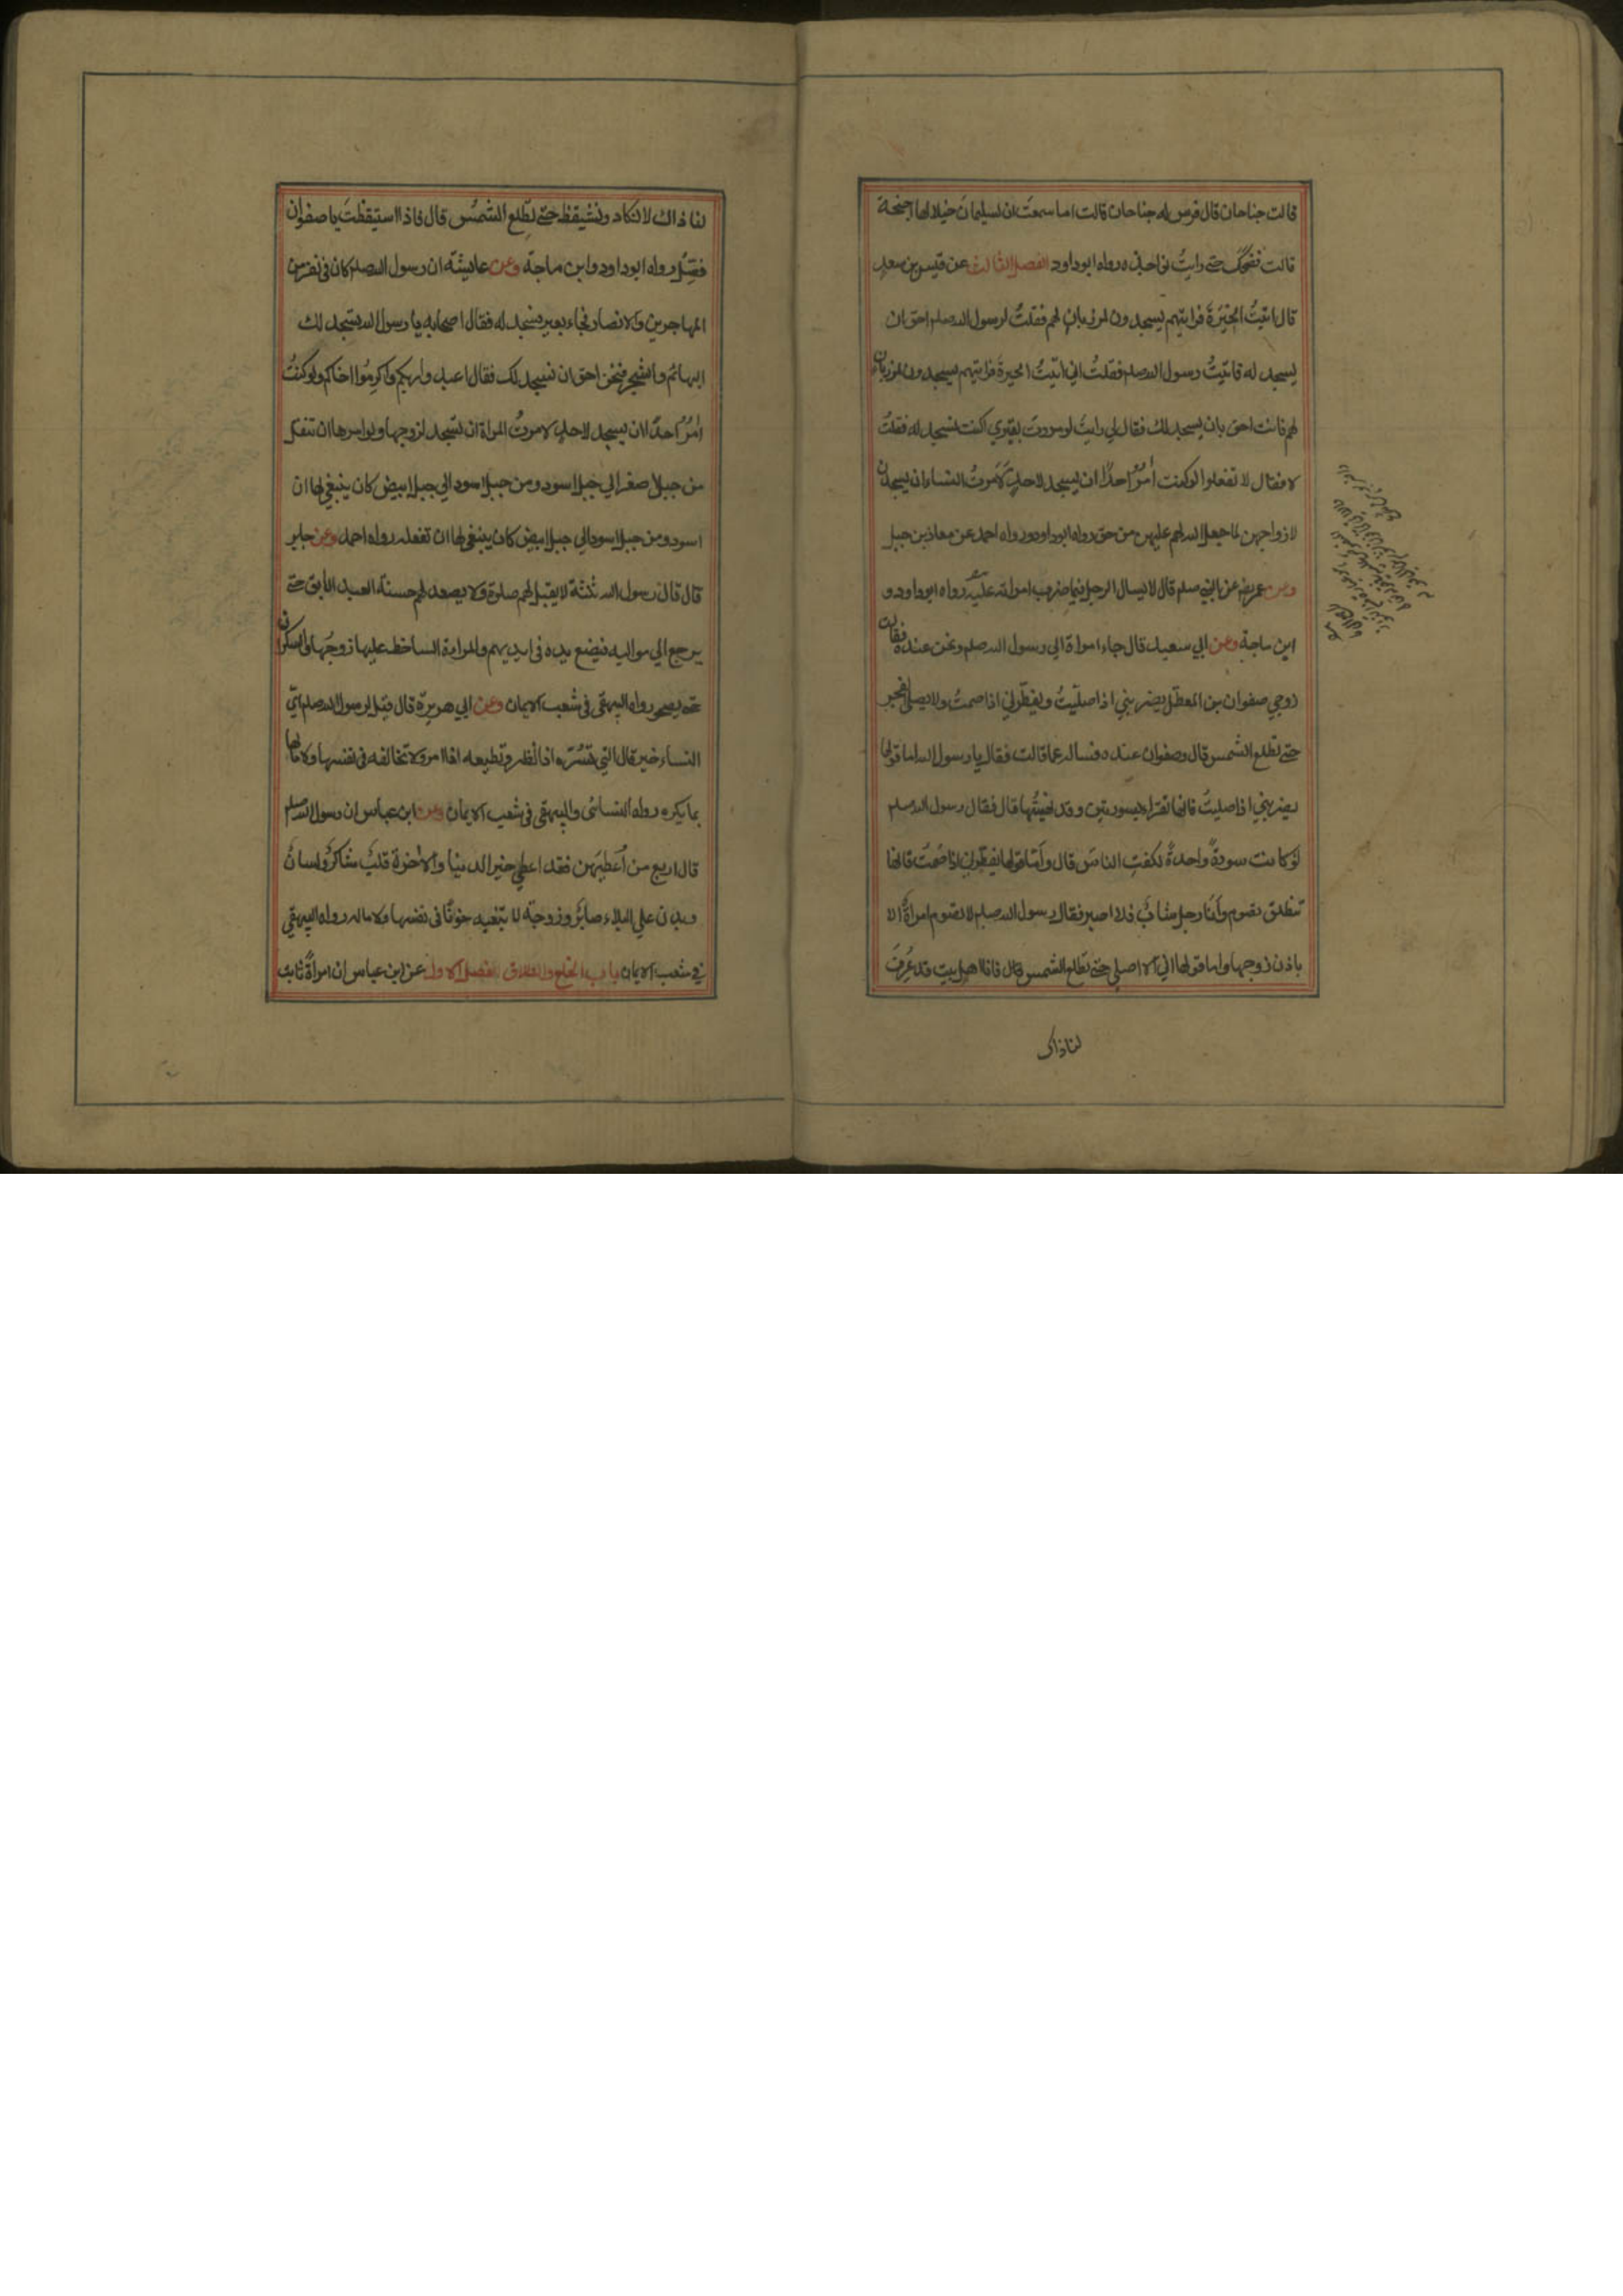 قالت جناحان قال فرس له جناحان قالت اما سمعت ان لسليمان خيلا لها اجنحة
قالت فضحك حتى رايت نواجذه رواه ابوداود الفصل الثالث عن قيس بن سعد
قال اتيت الحيرة فرايتهم يسجدون لمرزبان لهم فقلت لرسول الله صلعم احق ان
يسجد له فاتيت رسول الله صلعم فقلت اني اتيت الحيرة فرايتهم يسجدون لمرزبان
لهم فانت احق بان يسجد لك فقال لي رايت لو مررت بقبري اكنت تسجد له فقلت
لا فقال لا تفعلوا لو كنت آمر احدا ان يسجد لاحد لامرت النساء ان يسجدن
لازواجهن لما جعل الله لهم عليهن من حق رواه ابوداود ورواه احمد عن معاذ بن جبل
وعن عمر رض عن النبي صلعم قال لا يسال الرجل فيما ضرب امراته عليه رواه ابوداود و
ابن ماجة وعن ابي سعيد قال جاء امراة الى رسول الله صلعم ونحن عنده فقالت
زوجي صفوان بن المعطل يضربني اذا صليت ويفطرني اذا صمت ولا يصلي الفجر
حتى تطلع الشمس قال وصفوان عنده فساله عما قالت فقال يا رسول الله اما قولها
يضربني اذا صليت فانها تقرا بسورتين وقد نهيتها قال فقال رسول الله صلعم
لو كانت سورة واحدة لكفت الناس قال واما قولها يفطرني اذا صمت فانها
تنطلق تصوم وانا رجل شاب فلا اصبر فقال رسول الله صلعم لا تصوم امراة الا
باذن زوجها واما قولها اني لا اصلي حتى تطلع الشمس قال فانا اهل بيت قد عرف
لنا ذاك
لنا ذاك لا نكاد ونستيقظ حتى تطلع الشمس قال فاذا استيقظت يا صفوان
فصل رواه ابوداود وابن ماجة وعن عايشة ان رسول الله صلعم كان في نفر من
المهاجرين والانصار فجاء بعير فسجد له فقال اصحابه يا رسول الله يسجد لك
البهائم والشجر فنحن احق ان نسجد لك فقال اعبدوا ربكم واكرموا اخاكم ولو كنت
آمر احدا ان يسجد لاحد لامرت المراة ان تسجد لزوجها ولو امرها ان تنقل
من جبل اصفر الى جبل اسود ومن جبل اسود الى جبل ابيض كان ينبغي لها ان
اسود ومن جبل اسود الى جبل ابيض كان ينبغي لها ان تفعله رواه احمد وعن جابر
قال قال رسول الله ثلثة لا يقبل لهم صلوة ولا يصعد لهم حسنة العبد الآبق حتى
يرجع الى مواليه فيضع يده في ايديهم والمراة الساخط عليها زوجها والسكران
حتى يصحو رواه البيهقي في شعب الايمان وعن ابي هريرة قال قيل لرسول الله صلعم اي
النساء خير قال التي تسره اذا نظر وتطيعه اذا امر ولا تخالفه في نفسها ولا مالها
بما يكره رواه النسائي والبيهقي في شعب الايمان وعن ابن عباس ان رسول الله صلعم
قال اربع من اعطيهن فقد اعطي خير الدنيا والآخرة قلب شاكر ولسان
وبدن على البلاء صابر وزوجة لا تبغيه خونا في نفسها ولا ماله رواه البيهقي
في شعب الايمان باب الخلع والطلاق الفصل الاول عن ابن عباس ان امراة ثابت